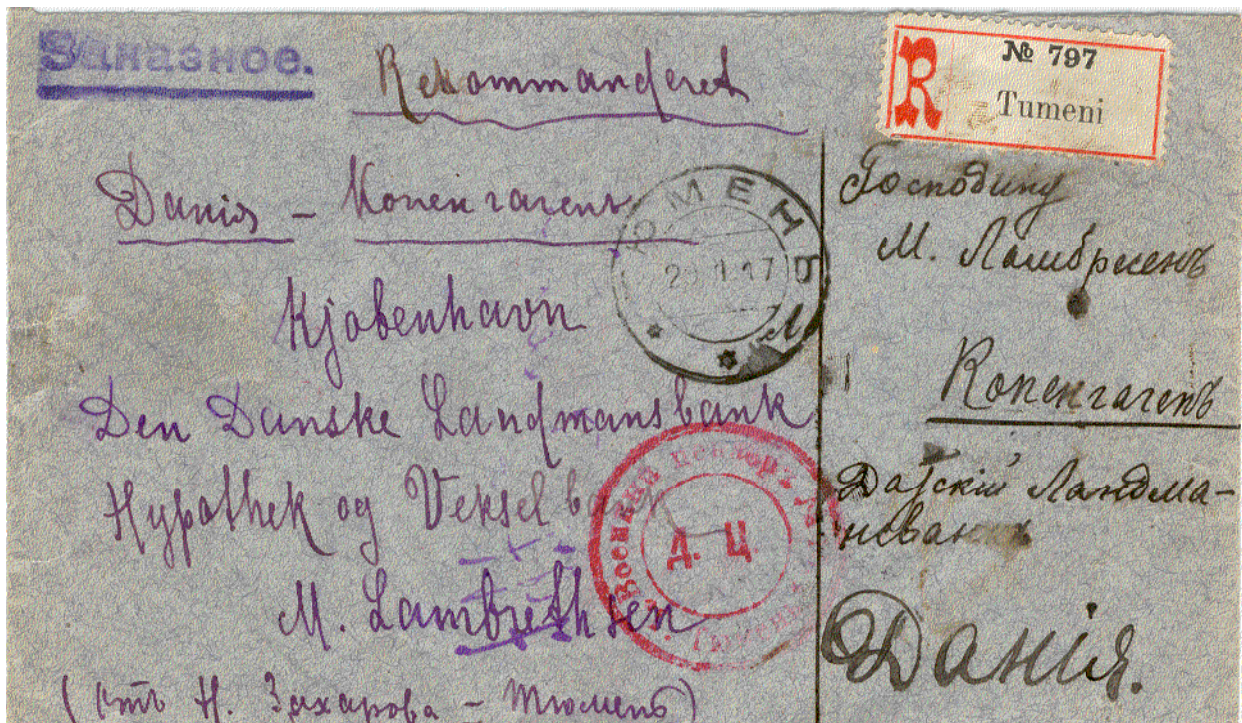 Заказное.
Rekommanderet
R
№ 797
Tumeni
Данія - Копенгагенъ
Kjobenhavn
Den Danske Landmansbank
Hypothek og Veksel bank
M. Lambrethsen
(отъ Н. Захарова - Тюмень)
ТЮМЕНЬ
29 11 17
Военный цензоръ
Д. Ц.
Господину
М. Ламбрсенъ
Копенгагенъ
Датскій Ландма-
нсбанкъ
Данія.